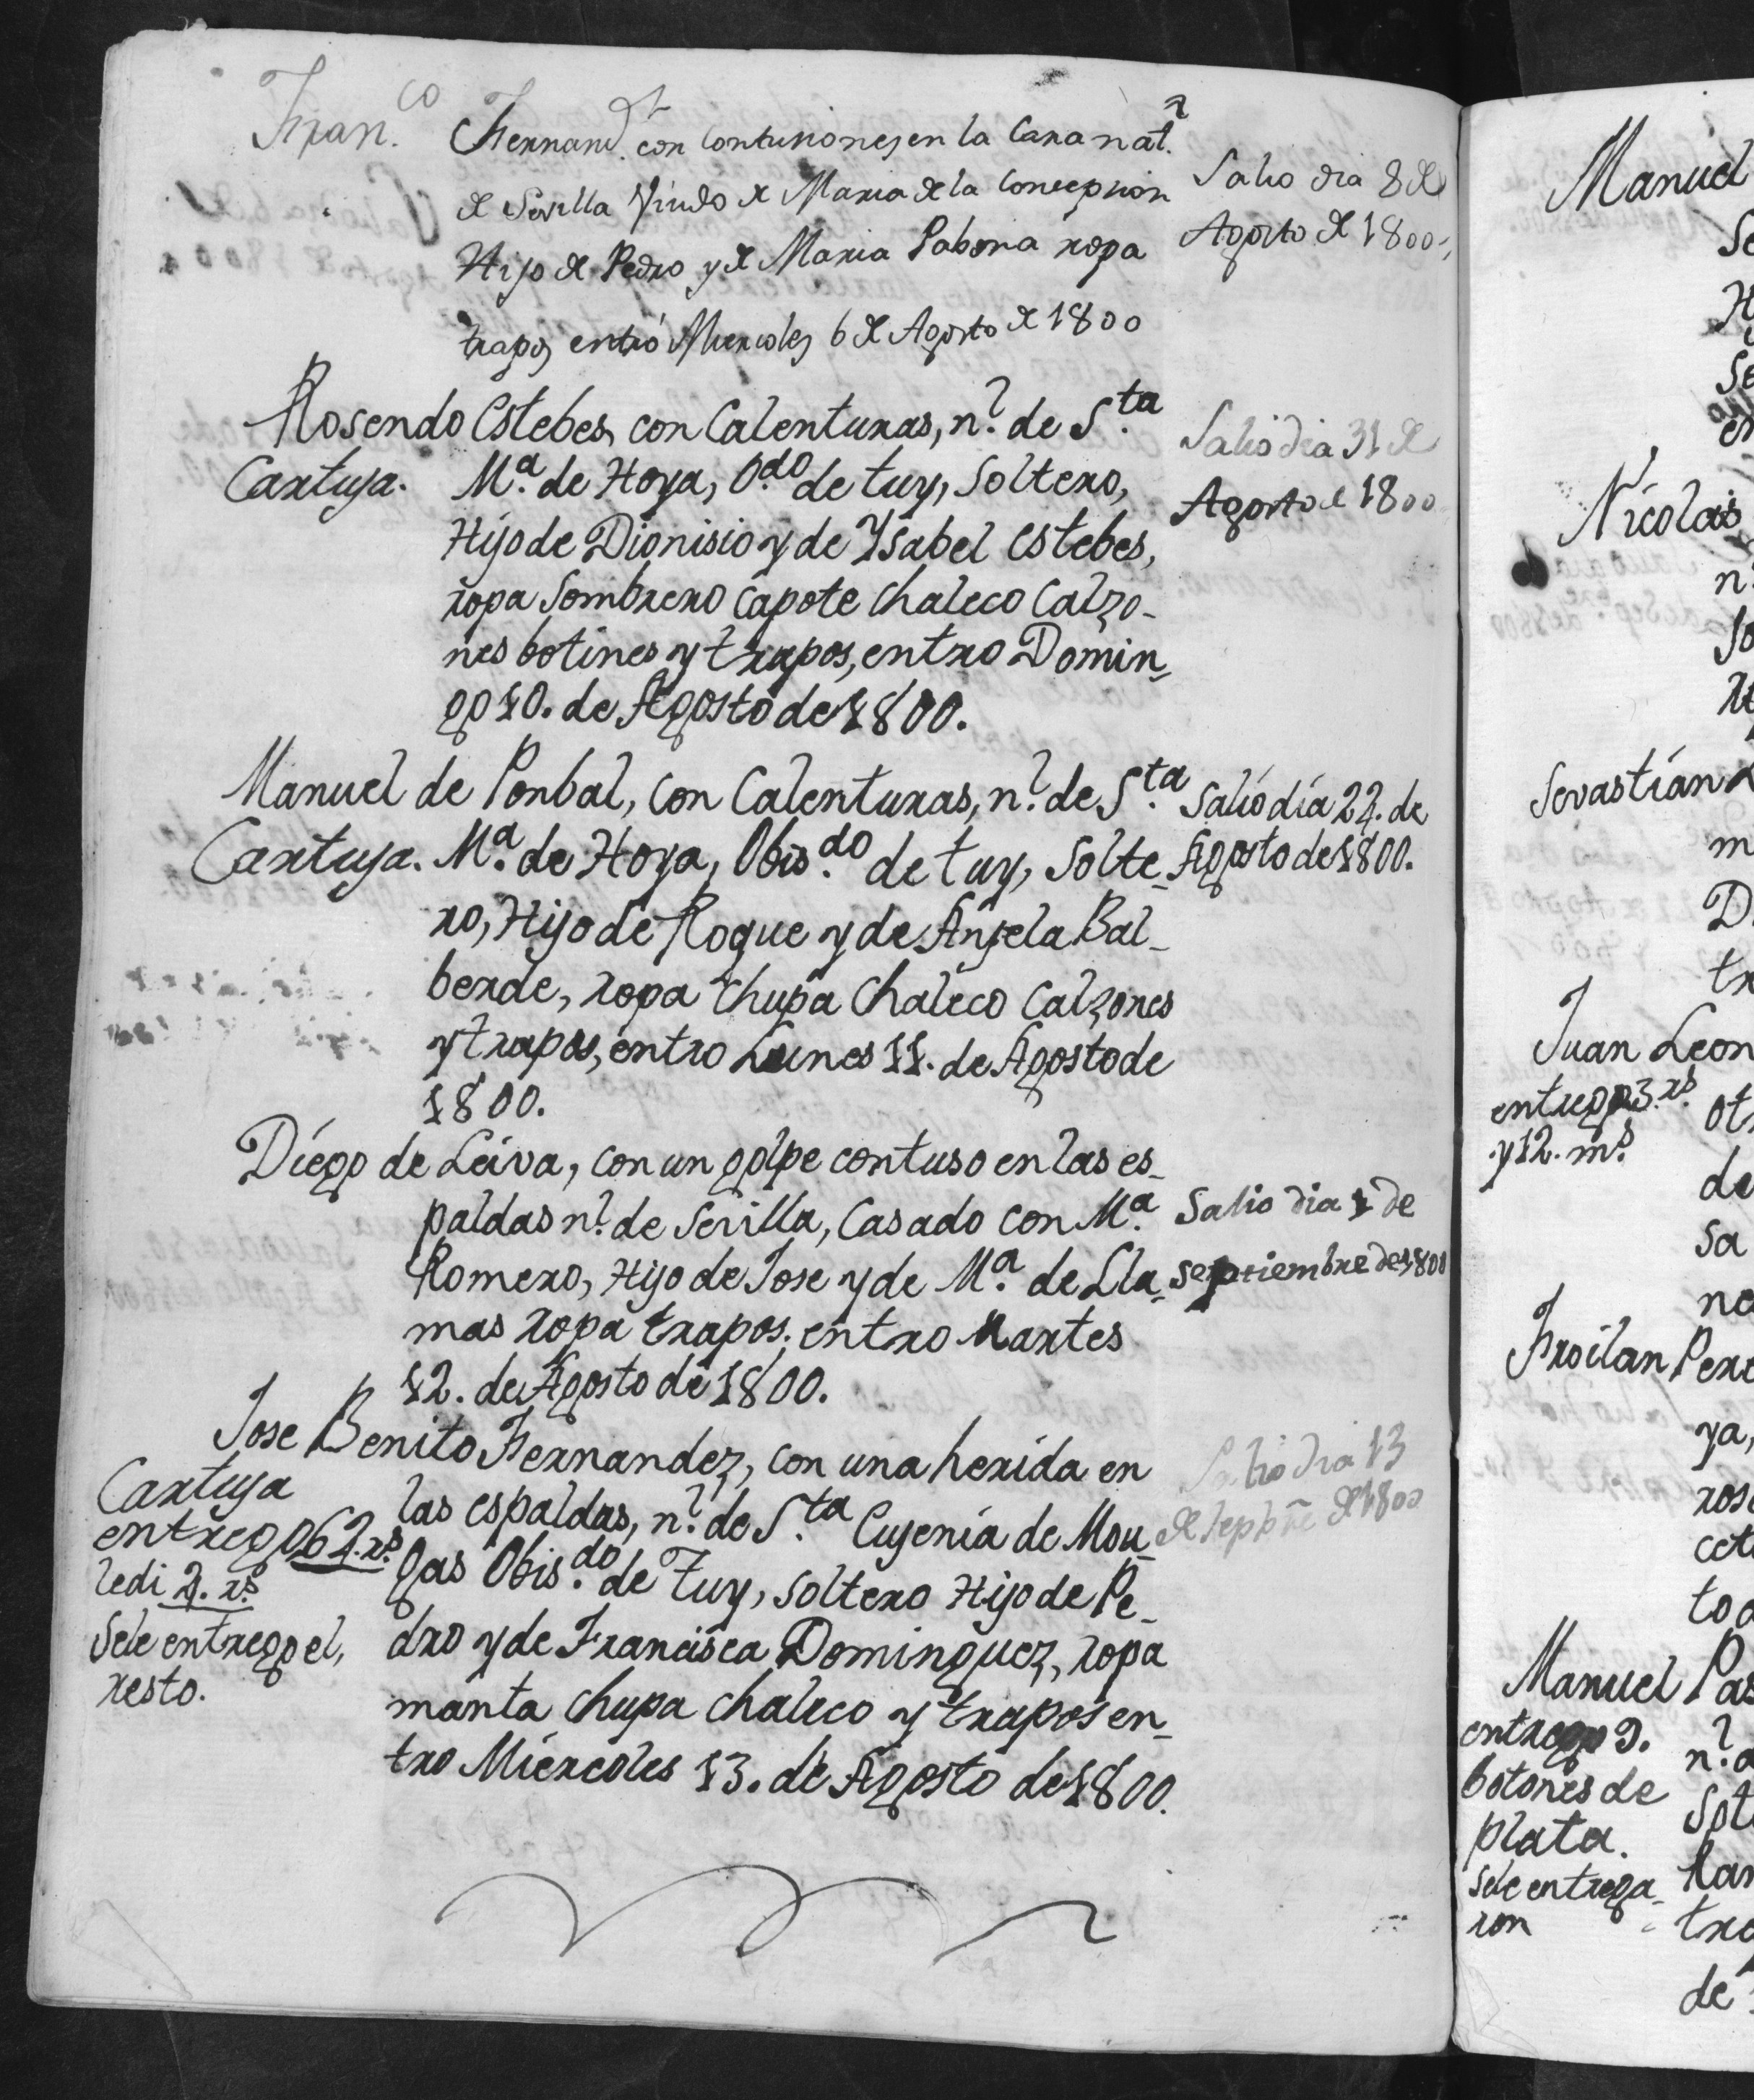 Fran.co Fernand.z con Contusiones en la Cara nat.l
de Sevilla Viudo de Maria de la Concepcion
Hijo de Pedro y de Maria Pabona ropa
trapos entró Miercoles 6 de Agosto de 1800
Salio dia 8 de
Agosto de 1800
Rosendo Estebes, con Calenturas, n.l de S.ta
Cartuja. M.a de Hoya, O.do de tuy, Soltero,
Hijo de Dionisio y de Ysabel Estebes,
ropa Sombrero Capote Chaleco Calzo-
nes botines y trapos, entro Domin-
go 10. de Agosto de 1800.
Salio dia 31 de
Agosto de 1800
Manuel de Ponbal, con Calenturas, n.l de S.ta
Cartuja. M.a de Hoya, Obis.do de tuy, Solte-
ro, Hijo de Roque y de Anjela Bal-
berde, ropa Chupa Chaleco Calzones
y trapos, entro Lunes 11. de Agosto de
1800.
Salió día 22. de
Agosto de 1800.
Diego de Leiva, con un golpe contuso en las es-
paldas n.l de Sevilla, Casado con M.a
Romero, Hijo de Jose y de M.a de Lla-
mas ropa trapos. entro Martes
12. de Agosto de 1800.
Salio dia 1 de
Septiembre de 1800
Jose Benito Fernandez, con una herida en
las espaldas, n.l de S.ta Eugenia de Mou-
gas Obis.do de Tuy, soltero Hijo de Pe-
dro y de Francisca Dominguez, ropa
manta chupa chaleco y trapos en-
tro Miercoles 13. de Agosto de 1800.
Cartuja
entrego 62. rs.
le di 2. rs.
Se le entrego el,
resto.
Salio dia 13
de Sepbre de 1800
Manuel
Nicolas
n.l
Sevastían
Juan Leon
entrego 3. rs.
y 12. ms.
de
sa
Froilan Pere
ya,
Manuel Pas
entrego 9.
botones de
plata.
Se le entrega-
ron
n.l
de